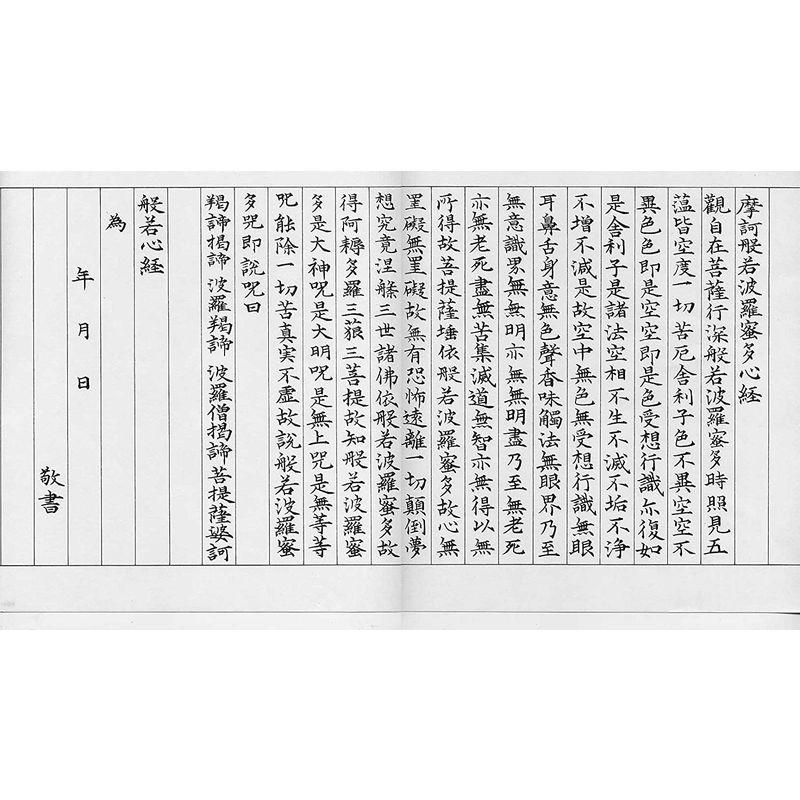 摩訶般若波羅蜜多心経
觀自在菩薩行深般若波羅蜜多時照見五
薀皆空度一切苦厄舎利子色不異空空不
異色色即是空空即是色受想行識亦復如
是舎利子是諸法空相不生不滅不垢不浄
不増不滅是故空中無色無受想行識無眼
耳鼻舌身意無色聲香味觸法無眼界乃至
無意識界無無明亦無無明盡乃至無老死
亦無老死盡無苦集滅道無智亦無得以無
所得故菩提薩埵依般若波羅蜜多故心無
罣礙無罣礙故無有恐怖遠離一切顛倒夢
想究竟涅槃三世諸佛依般若波羅蜜多故
得阿耨多羅三藐三菩提故知般若波羅蜜
多是大神呪是大明呪是無上呪是無等等
呪能除一切苦真実不虚故説般若波羅蜜
多呪即説呪曰
羯諦揭諦 波羅羯諦 波羅僧揭諦 菩提薩婆訶
般若心経
為
年 月 日
敬書